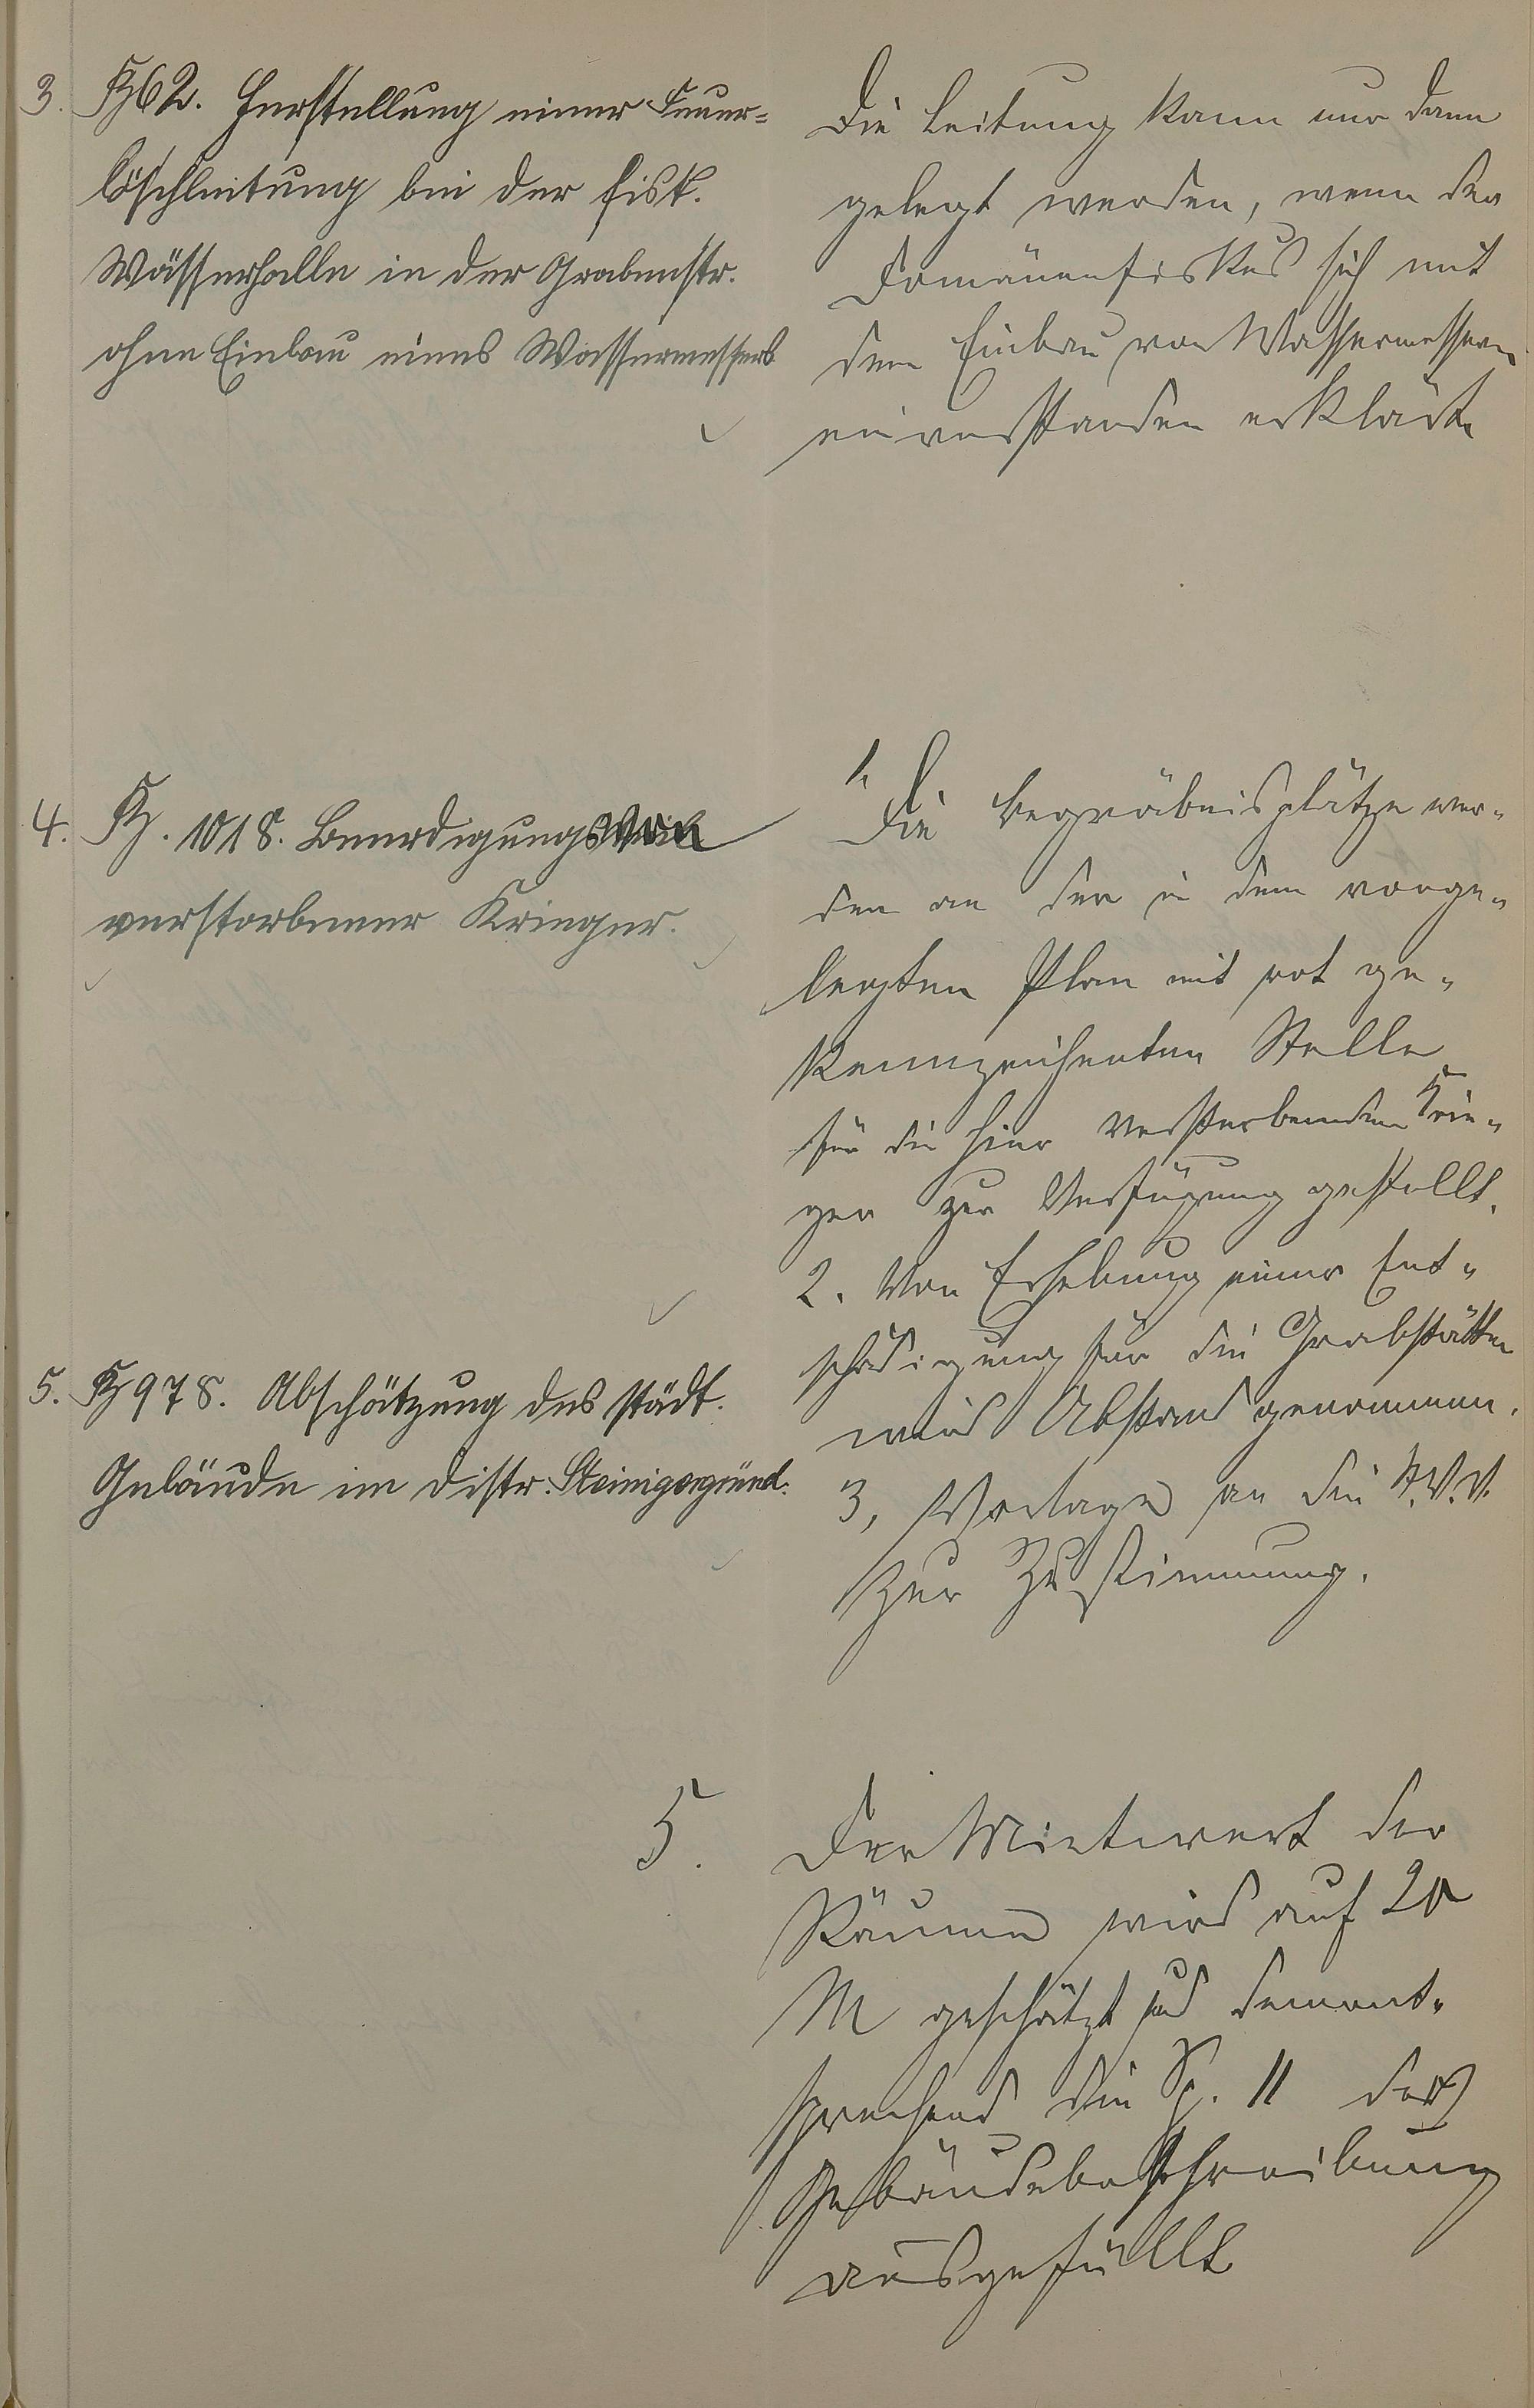 3. Kz 62. Herstellung einer Feuer=
löschleitung bei der fisk.
Wässerhalle in der Grabenstr.
ohne Einbau eines Wassermessers
Die Leitung kann nur dann
gelegt werden, wenn der
Domänenfiskus sich mit
dem Einbau von Wassermessern
einverstanden erklärt.
4. Kz. 1018. Beerdigungs von
verstorbener Krieger.
1. Die Begräbnisplätze wer-
den an der in dem vorge-
legten Plan mit rot ge-
kennzeichneten Stelle
für die hier versterbenden Krie-
ger zur Verfügung gestellt.
2. Von Erhebung einer Ent-
schädigung für die Grabstätten
wird Abstand genommen.
3, Vorlage an die St.V.V.
zur Zustimmung.
5. Kz 978. Abschätzung des städt.
Gebäude im Distr. Steinigergründ.
5. Der Mietwert der
Räume wird auf 20
M geschätzt und dement-
sprechend die Sp. 11 der
Gebäudebeschreibung
ausgefüllt